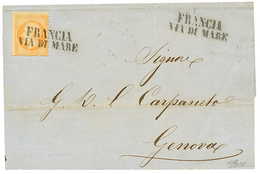 FRANCIA
VIA DI MARE
FRANCIA
VIA DI MARE
Signor
G. B. L. Carpaneto
Genova